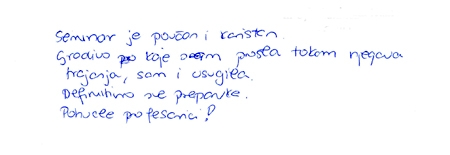 Seminar je poučan i koristan.
Gradivo koje sam prošla tokom njegova
trajanja, sam i usvojila.
Definitivno sve preporuke.
Pohvale profesorici!